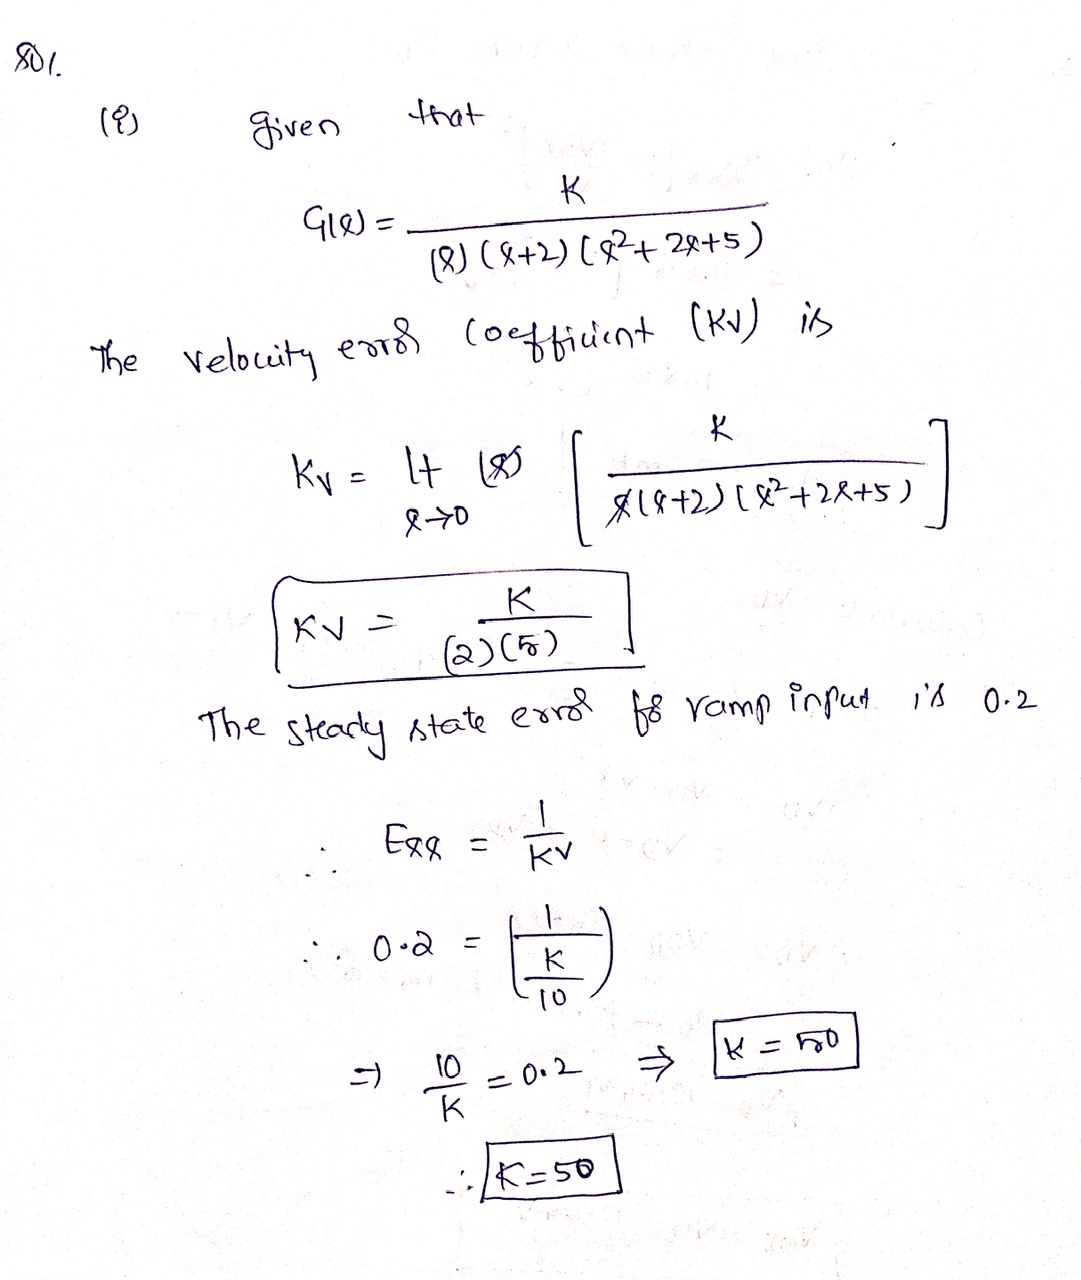 Sol.
(i) given that
G(s) = K / (s) (s+2) (s²+ 2s+5)
The velocity error coefficient (Kv) is
Kv = lt s→0 (s) [ K / s(s+2) (s²+2s+5) ]
Kv = K / (2)(5)
The steady state error for ramp input is 0.2
∴ Ess = 1 / Kv
∴ 0.2 = ( 1 / K/10 )
⇒ 10 / K = 0.2 ⇒ K = 50
∴ K=50